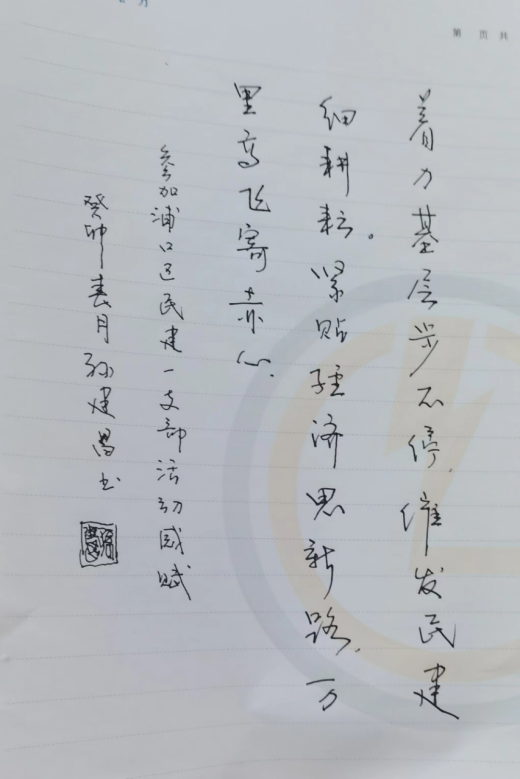 第 页共
着力基层步不停,催发民建
细耕耘。紧贴经济思新路,万
里高飞寄赤心.
参加浦口区民建一支部活动感赋
癸卯春月孙建昌书